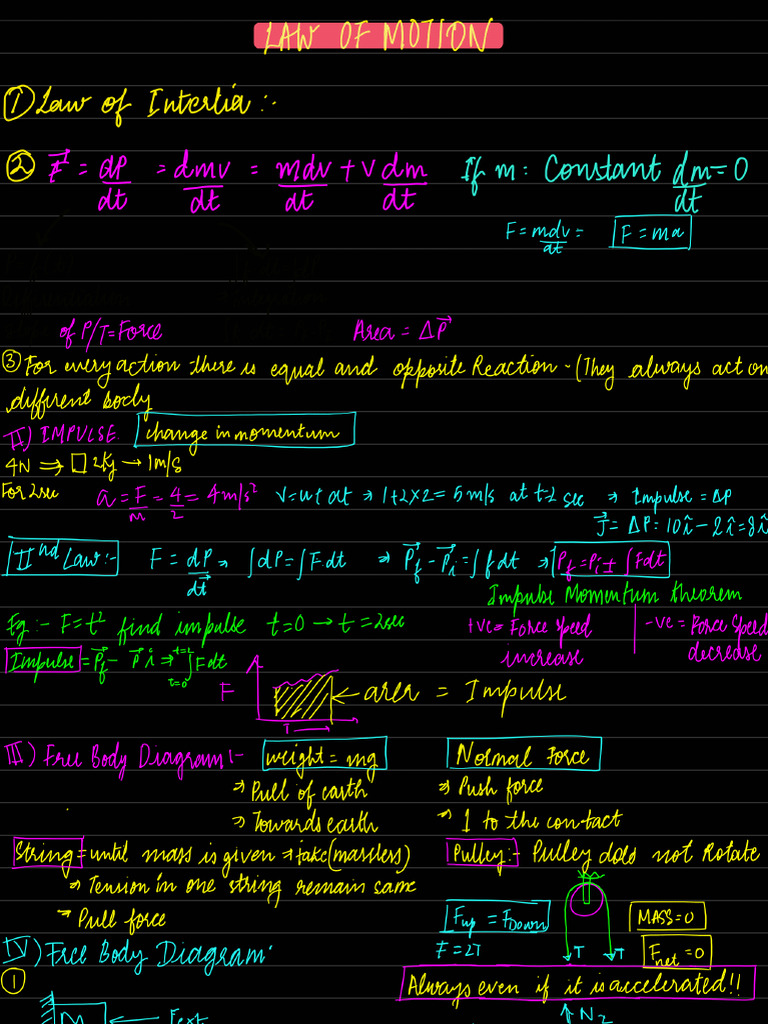 LAW OF MOTION
① Law of Intertia :-
② F⃗ = dP/dt = dmv/dt = mdv/dt + v dm/dt If m : Constant dm/dt = 0
F = mdv/dt = F = ma
of P/T = Force Area = ΔP⃗
③ For every action there is equal and opposite Reaction - (They always act on
different body
II) IMPULSE change in momentum
4N ⇒ □ 2kg → 1m/s
For 2sec a = F/m = 4/2 = 4m/s² V = u + at → 1+2×2 = 5m/s at t=2 sec → Impulse = ΔP
J⃗ = ΔP = 10î - 2î = 8î
IInd Law :- F = dP/dt → ∫dP = ∫Fdt → P⃗f - P⃗i = ∫fdt → Pf = Pi ± ∫Fdt
Impulse Momentum theorem
Eg :- F = t² find impulse t=0 → t = 2sec +ve = Force speed increase -ve = Force speed decrease
Impulse = P⃗f - P⃗i ⇒ ∫ t=0 t=2 Fdt
F ← area = Impulse
T →
III) Free Body Diagram :- weight = mg Normal Force
→ Pull of earth → Push force
→ Towards earth → ⊥ to the contact
String = until mass is given → take (massless) Pulley :- Pulley does not Rotate
→ Tension in one string remain same
→ Pull force Fup = FDown MASS = 0
IV) Free Body Diagram : F = 2T T T Fnet = 0
① Always even if it is accelerated!!
M ← Fext ↑N2